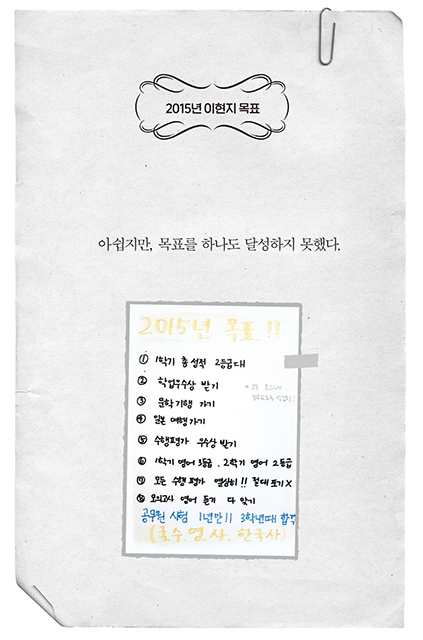 2015년 이현지 목표
아쉽지만, 목표를 하나도 달성하지 못했다.
2015년 목표!!
① 1학기 총 성적 2등급대
② 학업우수상 받기
③ 문학기행 가기
④ 일본 여행가기
⑤ 수행평가 우수상 받기
⑥ 1학기 영어 3등급, 2학기 영어 2등급
⑦ 모든 수행평가 열심히!! 절대 포기 X
⑧ 모의고사 영어 듣기 다 맞기
공무원 시험 1년만!! 3학년때 합격
(국.수.영.사.한국사)